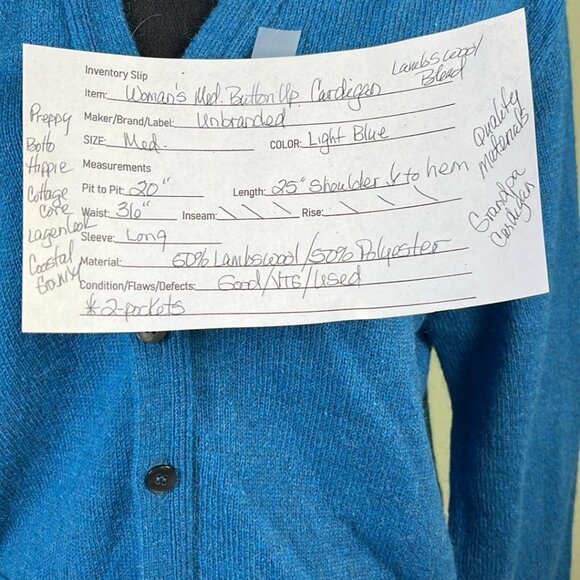 Inventory Slip
Item: Woman's Med. Button Up Cardigan
Lambswool Blend
Maker/Brand/Label: Unbranded
SIZE: Med. COLOR: Light Blue
Measurements
Pit to Pit: 20" Length: 25" Shoulder to hem
Waist: 36" Inseam: Rise:
Sleeve: Long
Material: 50% Lambswool/50% Polyester
Condition/Flaws/Defects: Good/VTG/Used
* 2-pockets
Preppy
Boho
Hippie
Cottage
Core
Lagenlook
Coastal
Granny
Quality
Materials
Grandpa
Cardigan